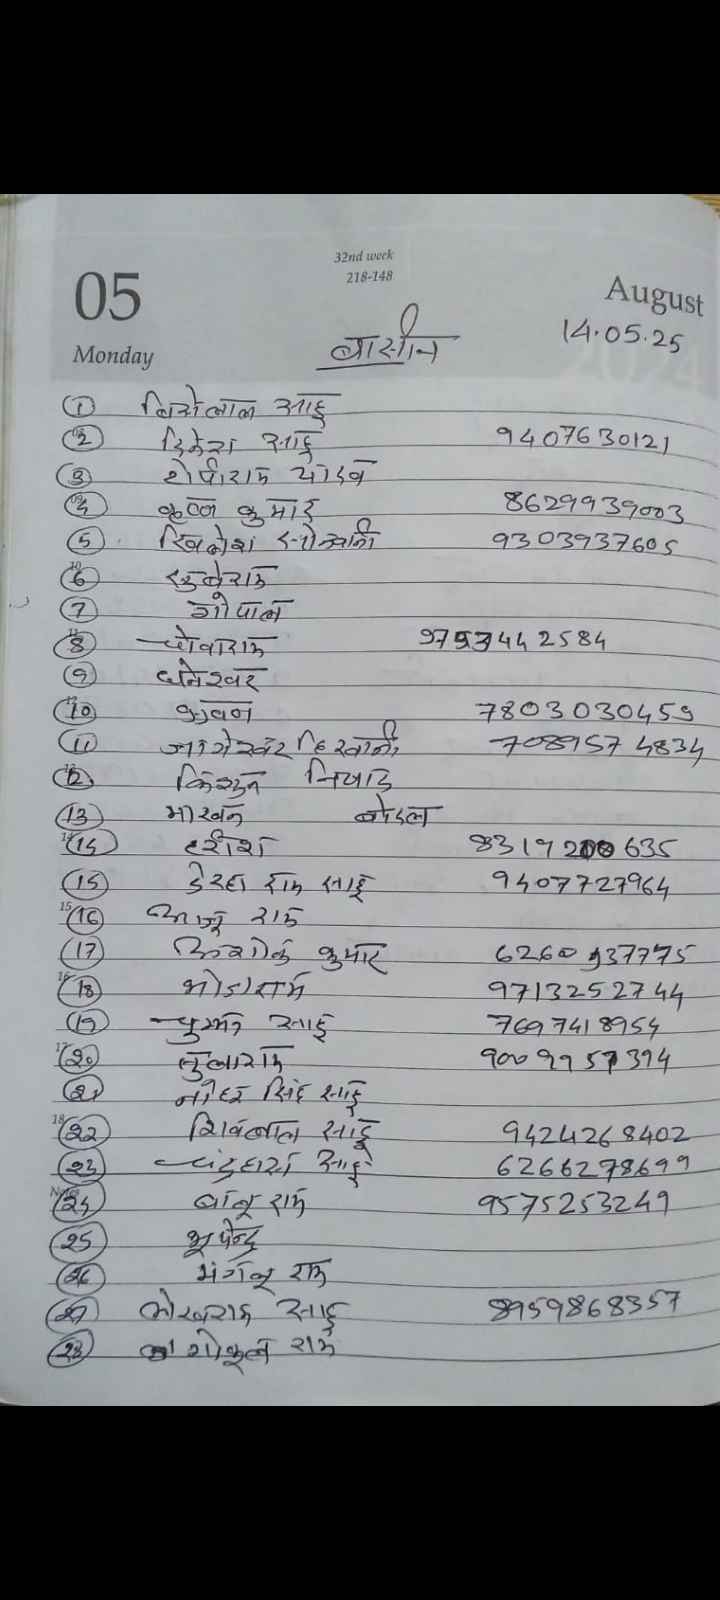 32nd week
218-148
05 August
Monday
बासीन 14.05.25
① साहू
② दिनेश साहू 9407630121
③ यादव
④ कृष्ण कुमार 8629939003
⑤ 9303937605
⑥
⑦ गोपाल
⑧ 9753442584
⑨ धनेश्वर
⑩ भुवन 7803030459
⑪ जागेश्वर हिरवानी 7089574834
⑫ किशुन निषाद
⑬ माखन
⑭ हरीश 8319200635
⑮ डेरहा राम साहू 9407727964
⑯ राम
⑰ कुमार 6260937775
⑱ 9713252744
⑲ साहू 7697418954
⑳ तुलाराम 9009957394
㉑ सिंह साहू
㉒ शिवलाल साहू 9424268402
㉓ साहू 6266278699
㉔ राम 9575253249
㉕ भूपेन्द्र
㉖ मंगलू राम
㉗ लेखराम साहू 8959868357
㉘ गोकुल राम